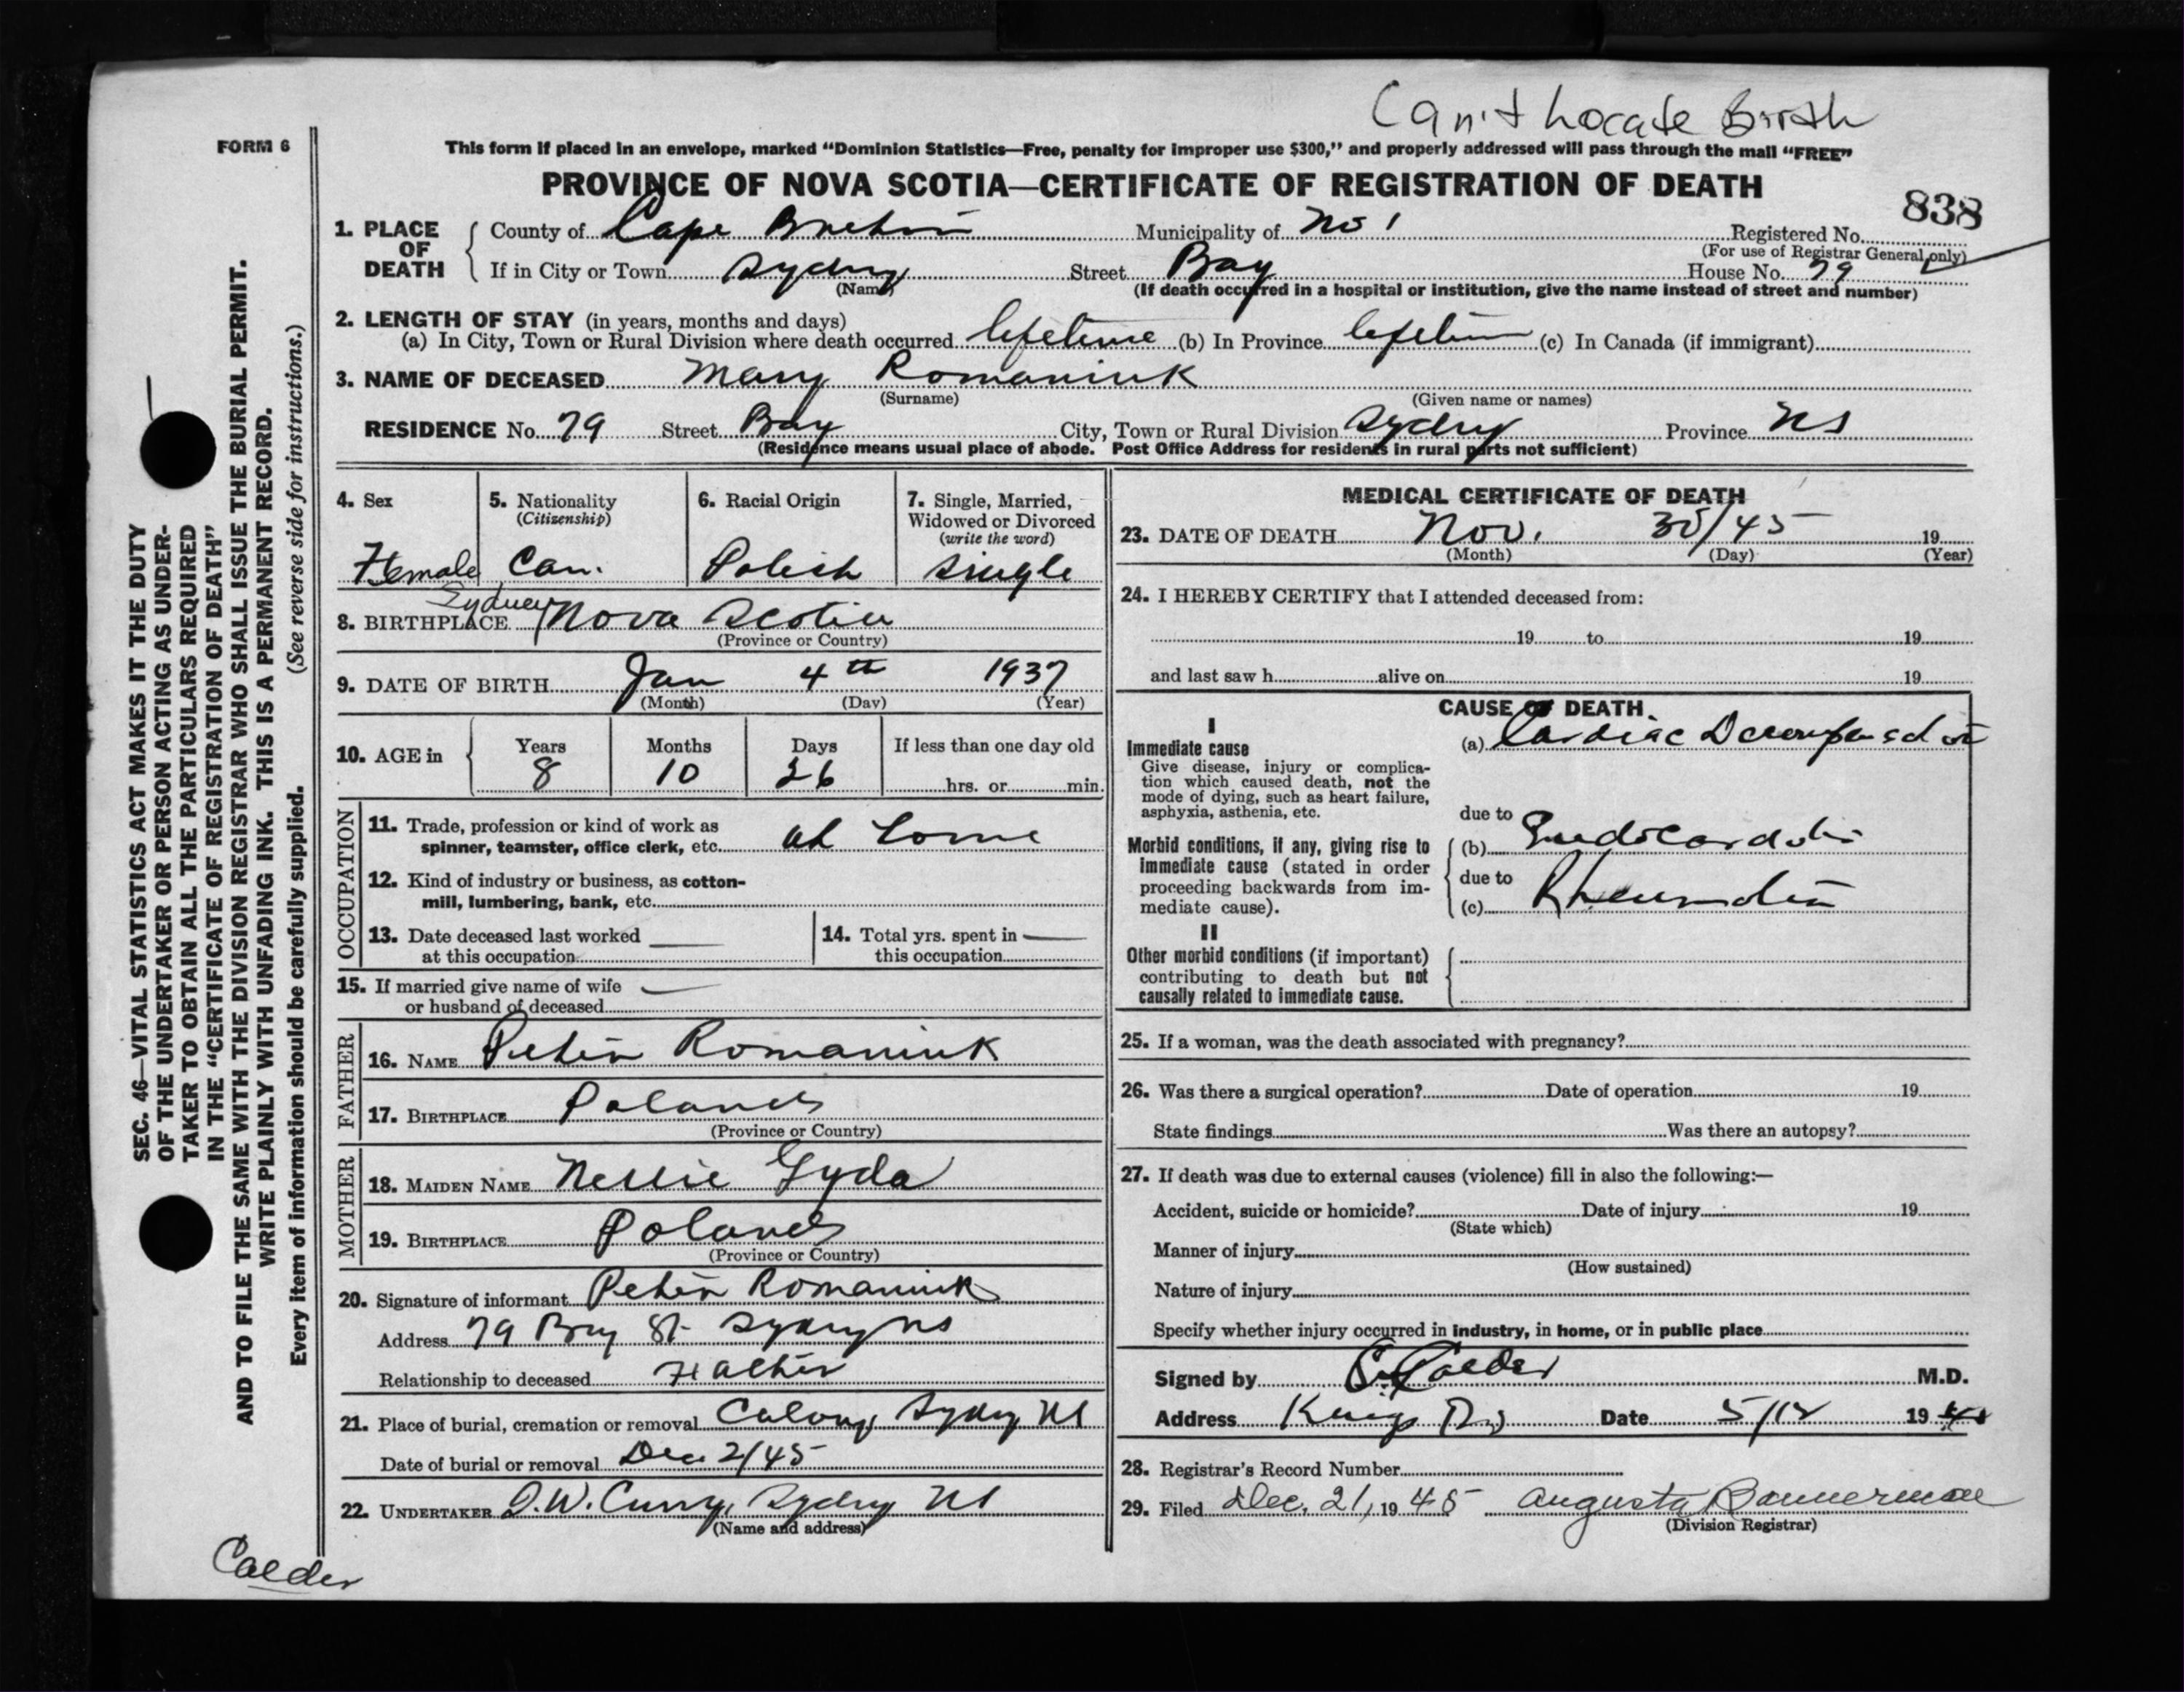 Can't Locate Birth
FORM 6
This form if placed in an envelope, marked “Dominion Statistics—Free, penalty for improper use $300,” and properly addressed will pass through the mail “FREE”
PROVINCE OF NOVA SCOTIA—CERTIFICATE OF REGISTRATION OF DEATH
838
1. PLACE OF DEATH
County of Cape Breton Municipality of No 1 Registered No.
(For use of Registrar General only)
If in City or Town Sydney Street Bay House No. 79
(Name)
(If death occurred in a hospital or institution, give the name instead of street and number)
2. LENGTH OF STAY (in years, months and days)
(a) In City, Town or Rural Division where death occurred lifetime (b) In Province lifetime (c) In Canada (if immigrant)
3. NAME OF DECEASED Mary Romaniuk
(Surname) (Given name or names)
RESIDENCE No. 79 Street Bay City, Town or Rural Division Sydney Province NS
(Residence means usual place of abode. Post Office Address for residents in rural parts not sufficient)
4. Sex
Female
5. Nationality
(Citizenship)
Can.
6. Racial Origin
Polish
7. Single, Married,
Widowed or Divorced
(write the word)
Single
8. BIRTHPLACE Sydney Nova Scotia
(Province or Country)
9. DATE OF BIRTH Jan 4th 1937
(Month) (Day) (Year)
10. AGE in
Years Months Days If less than one day old
8 10 26 hrs. or min.
OCCUPATION
11. Trade, profession or kind of work as
spinner, teamster, office clerk, etc. at home
12. Kind of industry or business, as cotton-
mill, lumbering, bank, etc.
13. Date deceased last worked
at this occupation
14. Total yrs. spent in
this occupation
15. If married give name of wife
or husband of deceased
FATHER
16. NAME Peter Romaniuk
17. BIRTHPLACE Poland
(Province or Country)
MOTHER
18. MAIDEN NAME Nellie Gyda
19. BIRTHPLACE Poland
(Province or Country)
20. Signature of informant Peter Romaniuk
Address 79 Bay St Sydney NS
Relationship to deceased Father
21. Place of burial, cremation or removal Sydney NS
Date of burial or removal Dec 2/45
22. UNDERTAKER D.W. Curry, Sydney NS
(Name and address)
MEDICAL CERTIFICATE OF DEATH
23. DATE OF DEATH Nov. 30/45 19
(Month) (Day) (Year)
24. I HEREBY CERTIFY that I attended deceased from:
19 to 19
and last saw h alive on 19
CAUSE OF DEATH
I
Immediate cause
Give disease, injury or complica-
tion which caused death, not the
mode of dying, such as heart failure,
asphyxia, asthenia, etc.
(a) Cardiac Decompensation
due to
Morbid conditions, if any, giving rise to
immediate cause (stated in order
proceeding backwards from im-
mediate cause).
(b) Endocarditis
due to
(c)
II
Other morbid conditions (if important)
contributing to death but not
causally related to immediate cause.
25. If a woman, was the death associated with pregnancy?
26. Was there a surgical operation? Date of operation 19
State findings Was there an autopsy?
27. If death was due to external causes (violence) fill in also the following:—
Accident, suicide or homicide? Date of injury 19
(State which)
Manner of injury
(How sustained)
Nature of injury
Specify whether injury occurred in industry, in home, or in public place
Signed by Calder M.D.
Address Kings Rd Date 5/12 19
28. Registrar's Record Number
29. Filed Dec. 21, 1945 Augusta Bannerman
(Division Registrar)
SEC. 46—VITAL STATISTICS ACT MAKES IT THE DUTY
OF THE UNDERTAKER OR PERSON ACTING AS UNDER-
TAKER TO OBTAIN ALL THE PARTICULARS REQUIRED
IN THE “CERTIFICATE OF REGISTRATION OF DEATH”
AND TO FILE THE SAME WITH THE DIVISION REGISTRAR WHO SHALL ISSUE THE BURIAL PERMIT.
WRITE PLAINLY WITH UNFADING INK. THIS IS A PERMANENT RECORD.
Every item of information should be carefully supplied. (See reverse side for instructions.)
Calder